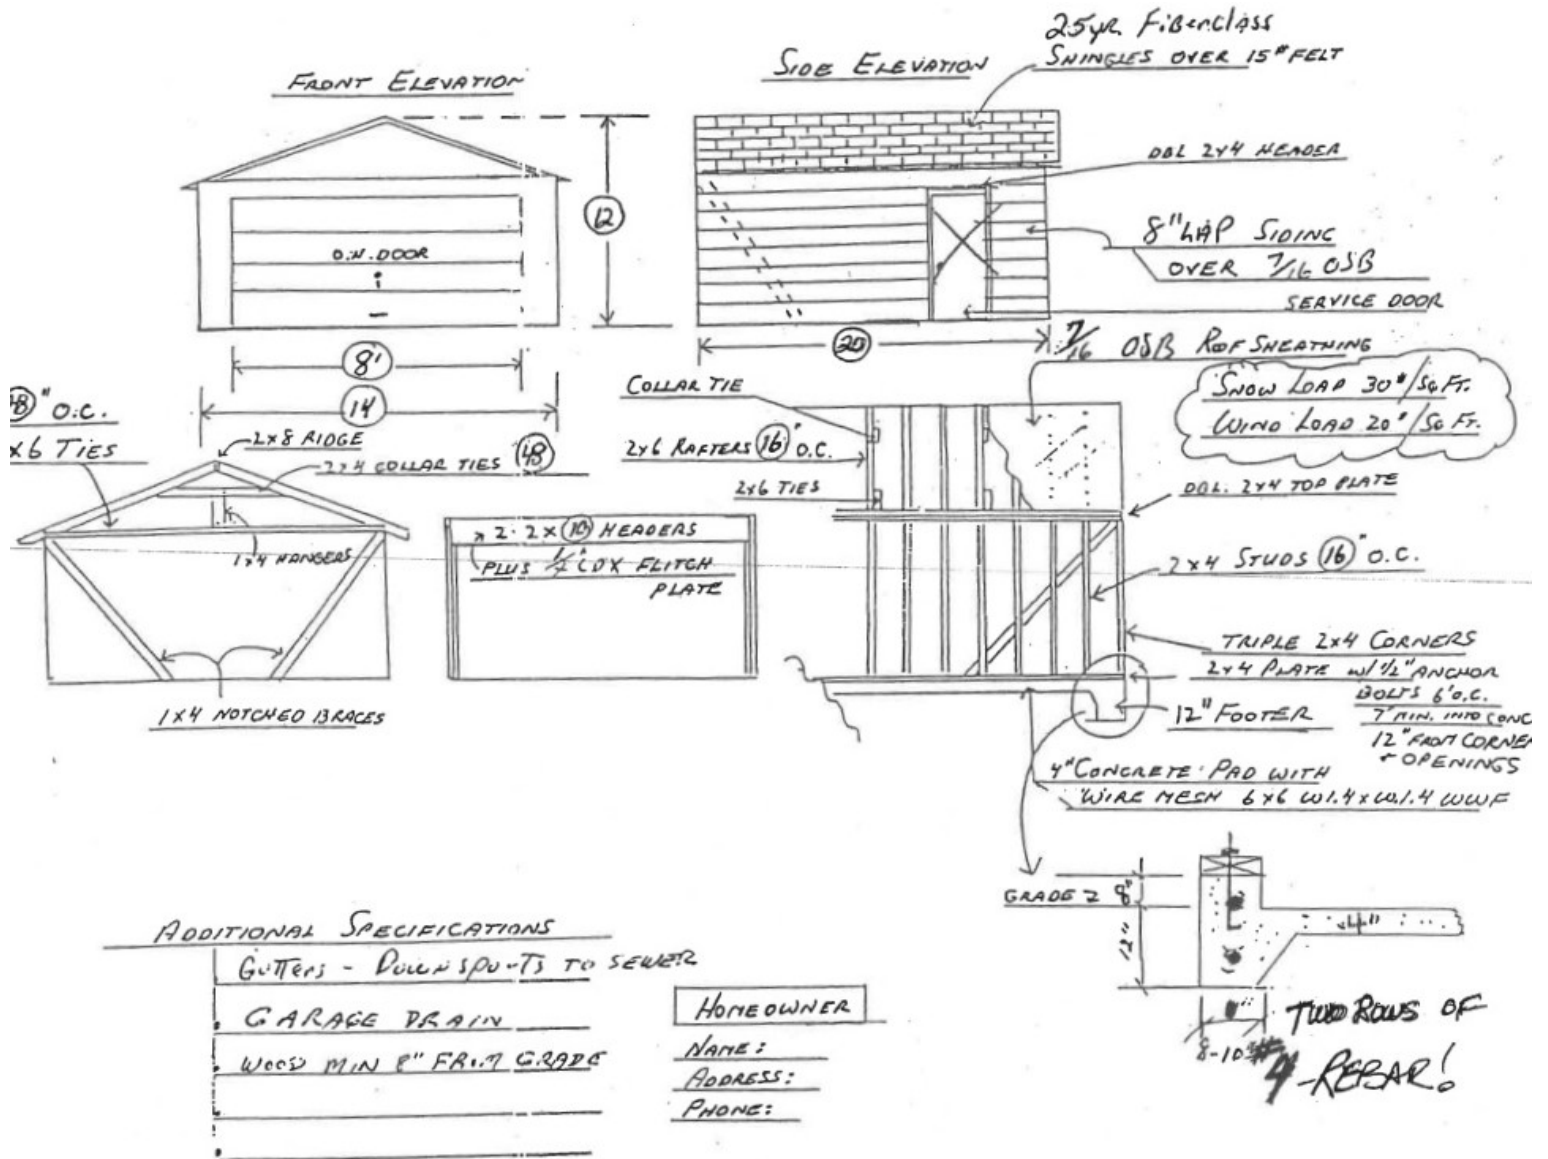 FRONT ELEVATION
SIDE ELEVATION
25yr. Fiberclass
SHINGLES OVER 15# FELT
DBL 2x4 HEADER
8" LAP SIDING
OVER 7/16 OSB
SERVICE DOOR
O.H. DOOR
12
8'
14
20
7/16 OSB ROOF SHEATHING
SNOW LOAD 30#/SQ FT.
WIND LOAD 20#/SQ FT.
48" O.C.
x6 TIES
2x8 RIDGE
2x4 COLLAR TIES 48
1x4 HANGERS
1x4 NOTCHED BRACES
2-2x10 HEADERS
PLUS 1/2" CDX FLITCH
PLATE
COLLAR TIE
2x6 RAFTERS 16" O.C.
2x6 TIES
DBL. 2x4 TOP PLATE
2x4 STUDS 16" O.C.
TRIPLE 2x4 CORNERS
2x4 PLATE w/ 1/2" ANCHOR
BOLTS 6' O.C.
7" MIN. INTO CONC
12" FROM CORNER
+ OPENINGS
12" FOOTER
4" CONCRETE PAD WITH
WIRE MESH 6x6 W1.4xW1.4 WWF
GRADE
8"
12"
4"
8-10"
TWO ROWS OF
#4-REBAR!
ADDITIONAL SPECIFICATIONS
GuTTers - DownspouTs TO SEWER
GARAGE DRAIN
WOOD MIN 8" FROM GRADE
HOMEOWNER
NAME:
ADDRESS:
PHONE: